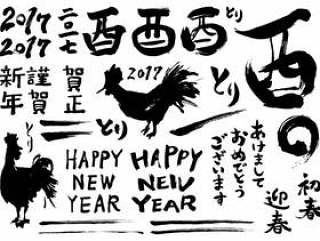 2017
2017
二〇一七
酉
酉
酉
とり
酉
新年
謹賀
賀正
2017
とり
とり
とり
HAPPY
NEW
YEAR
HAPPY
NEW
YEAR
あけまして
おめでとう
ございます
初春
迎春